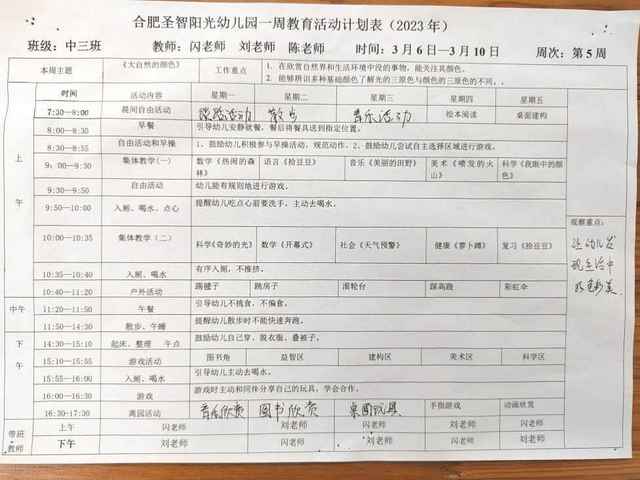 合肥圣智阳光幼儿园一周教育活动计划表（2023 年）
班级：中三班 教师：闪老师 刘老师 陈老师 时间：3 月 6 日—3 月 10 日 周次：第 5 周
本周主题 《大自然的颜色》 工作重点 1、在欣赏自然界和生活环境中没的事物，能关注其颜色。
2、能够辨识多种基础颜色了解光的三原色与颜色的三原色的不同。
时间 活动内容 星期一 星期二 星期三 星期四 星期五
7:30—8:00 晨间自由活动 活动 散步 音乐活动 绘本阅读 桌面建构
8:00—8:30 早餐 引导幼儿安静就餐，餐后将餐具送到指定位置。
8:30—8:35 自由活动和早操 1、鼓励幼儿积极参与早操活动，规范动作。2、鼓励幼儿尝试自主选择区域进行游戏。
上午
9：00—9:30 集体教学(一) 数学《热闹的森林》 语言《捡豆豆》 音乐《美丽的田野》 美术《喷发的火山》 科学《我眼中的颜色》
9:30—9:50 自由活动 幼儿能有规则地进行游戏。
9:50—10:00 入厕、喝水、点心 提醒幼儿吃点心前要洗手，主动去喝水。
观察重点：
10:00—10:35 集体教学（二） 科学《奇妙的光》 数学《开幕式》 社会《天气预警》 健康《萝卜蹲》 复习《捡豆豆》
让幼儿发
现生活中
的色彩美
10:35—10:40 入厕、喝水 有序入厕，不推挤。
10:40—11:20 户外活动 踢毽子 跳房子 滚轮台 踩高跷 彩虹伞
中午 11:20—11:50 午餐 引导幼儿不挑食，不偏食。
11:50—14:30 散步、午睡 提醒幼儿散步时不能快速奔跑。
下午
14:30—15:10 起床、整理 午点 鼓励幼儿自己穿、脱衣服、叠被子。
15:10—15:55 游戏活动 图书角 益智区 建构区 美术区 科学区
15:55—16:00 入厕、喝水 引导幼儿主动去喝水。
16:00—16:30 游戏 游戏时主动和同伴分享自己的玩具，学会合作。
16:30-17:30 离园活动 音乐欣赏 图书欣赏 桌面玩具 手指游戏 动画欣赏
带班教师 上午 闪老师 刘老师 闪老师 刘老师 闪老师
下午 刘老师 闪老师 刘老师 闪老师 刘老师